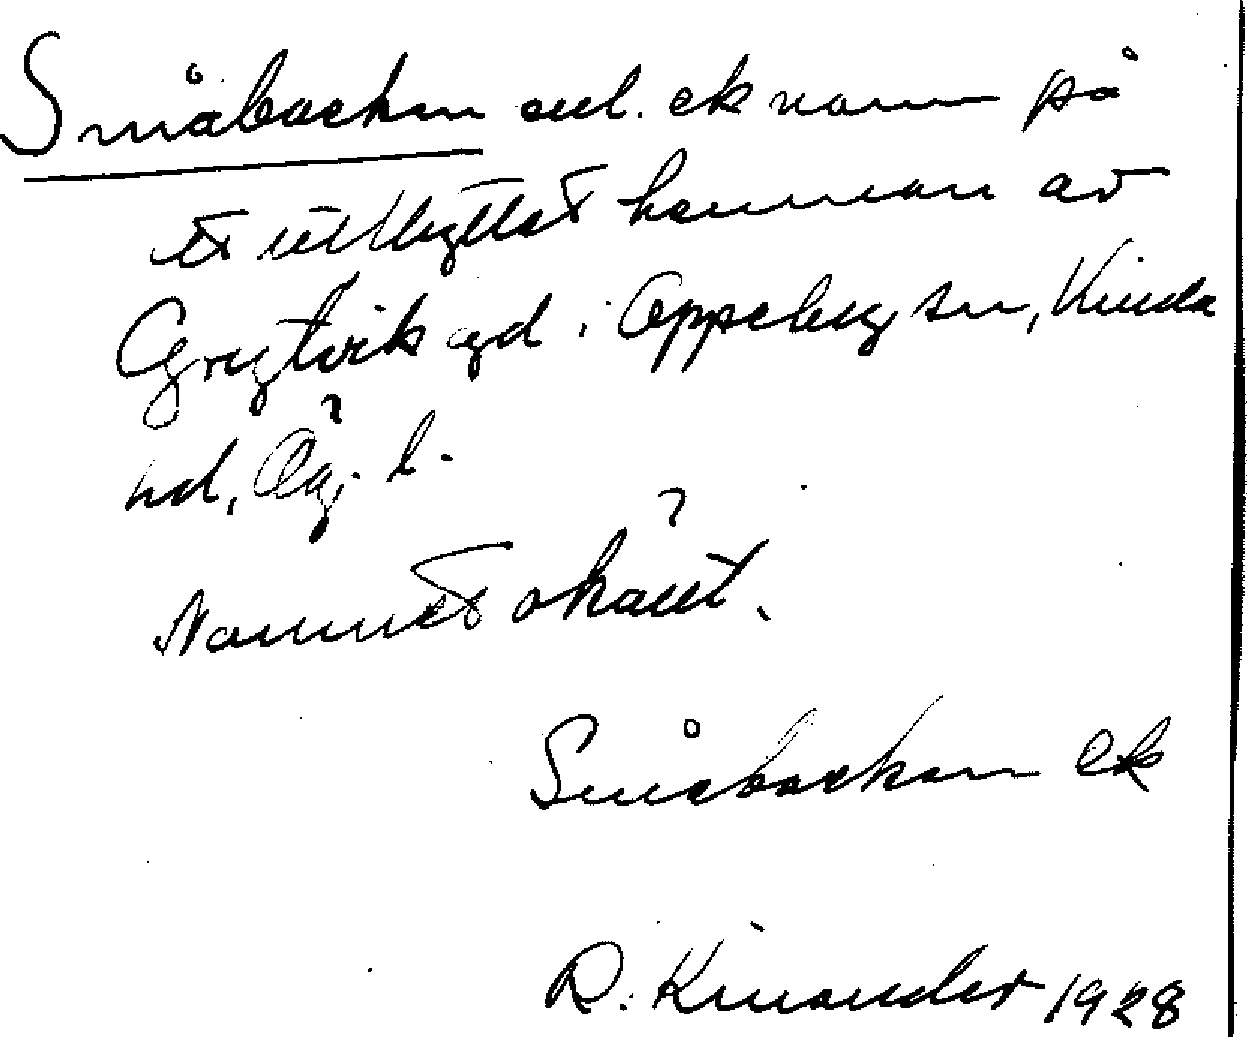 Småbacken enl. ek namn på
ett utflyttat hemman av
Grytvik gd i Oppeby sn, Kinda
hd, Ög. l.
Namnet okänt.
Småbacken ek
R. Kinander 1928